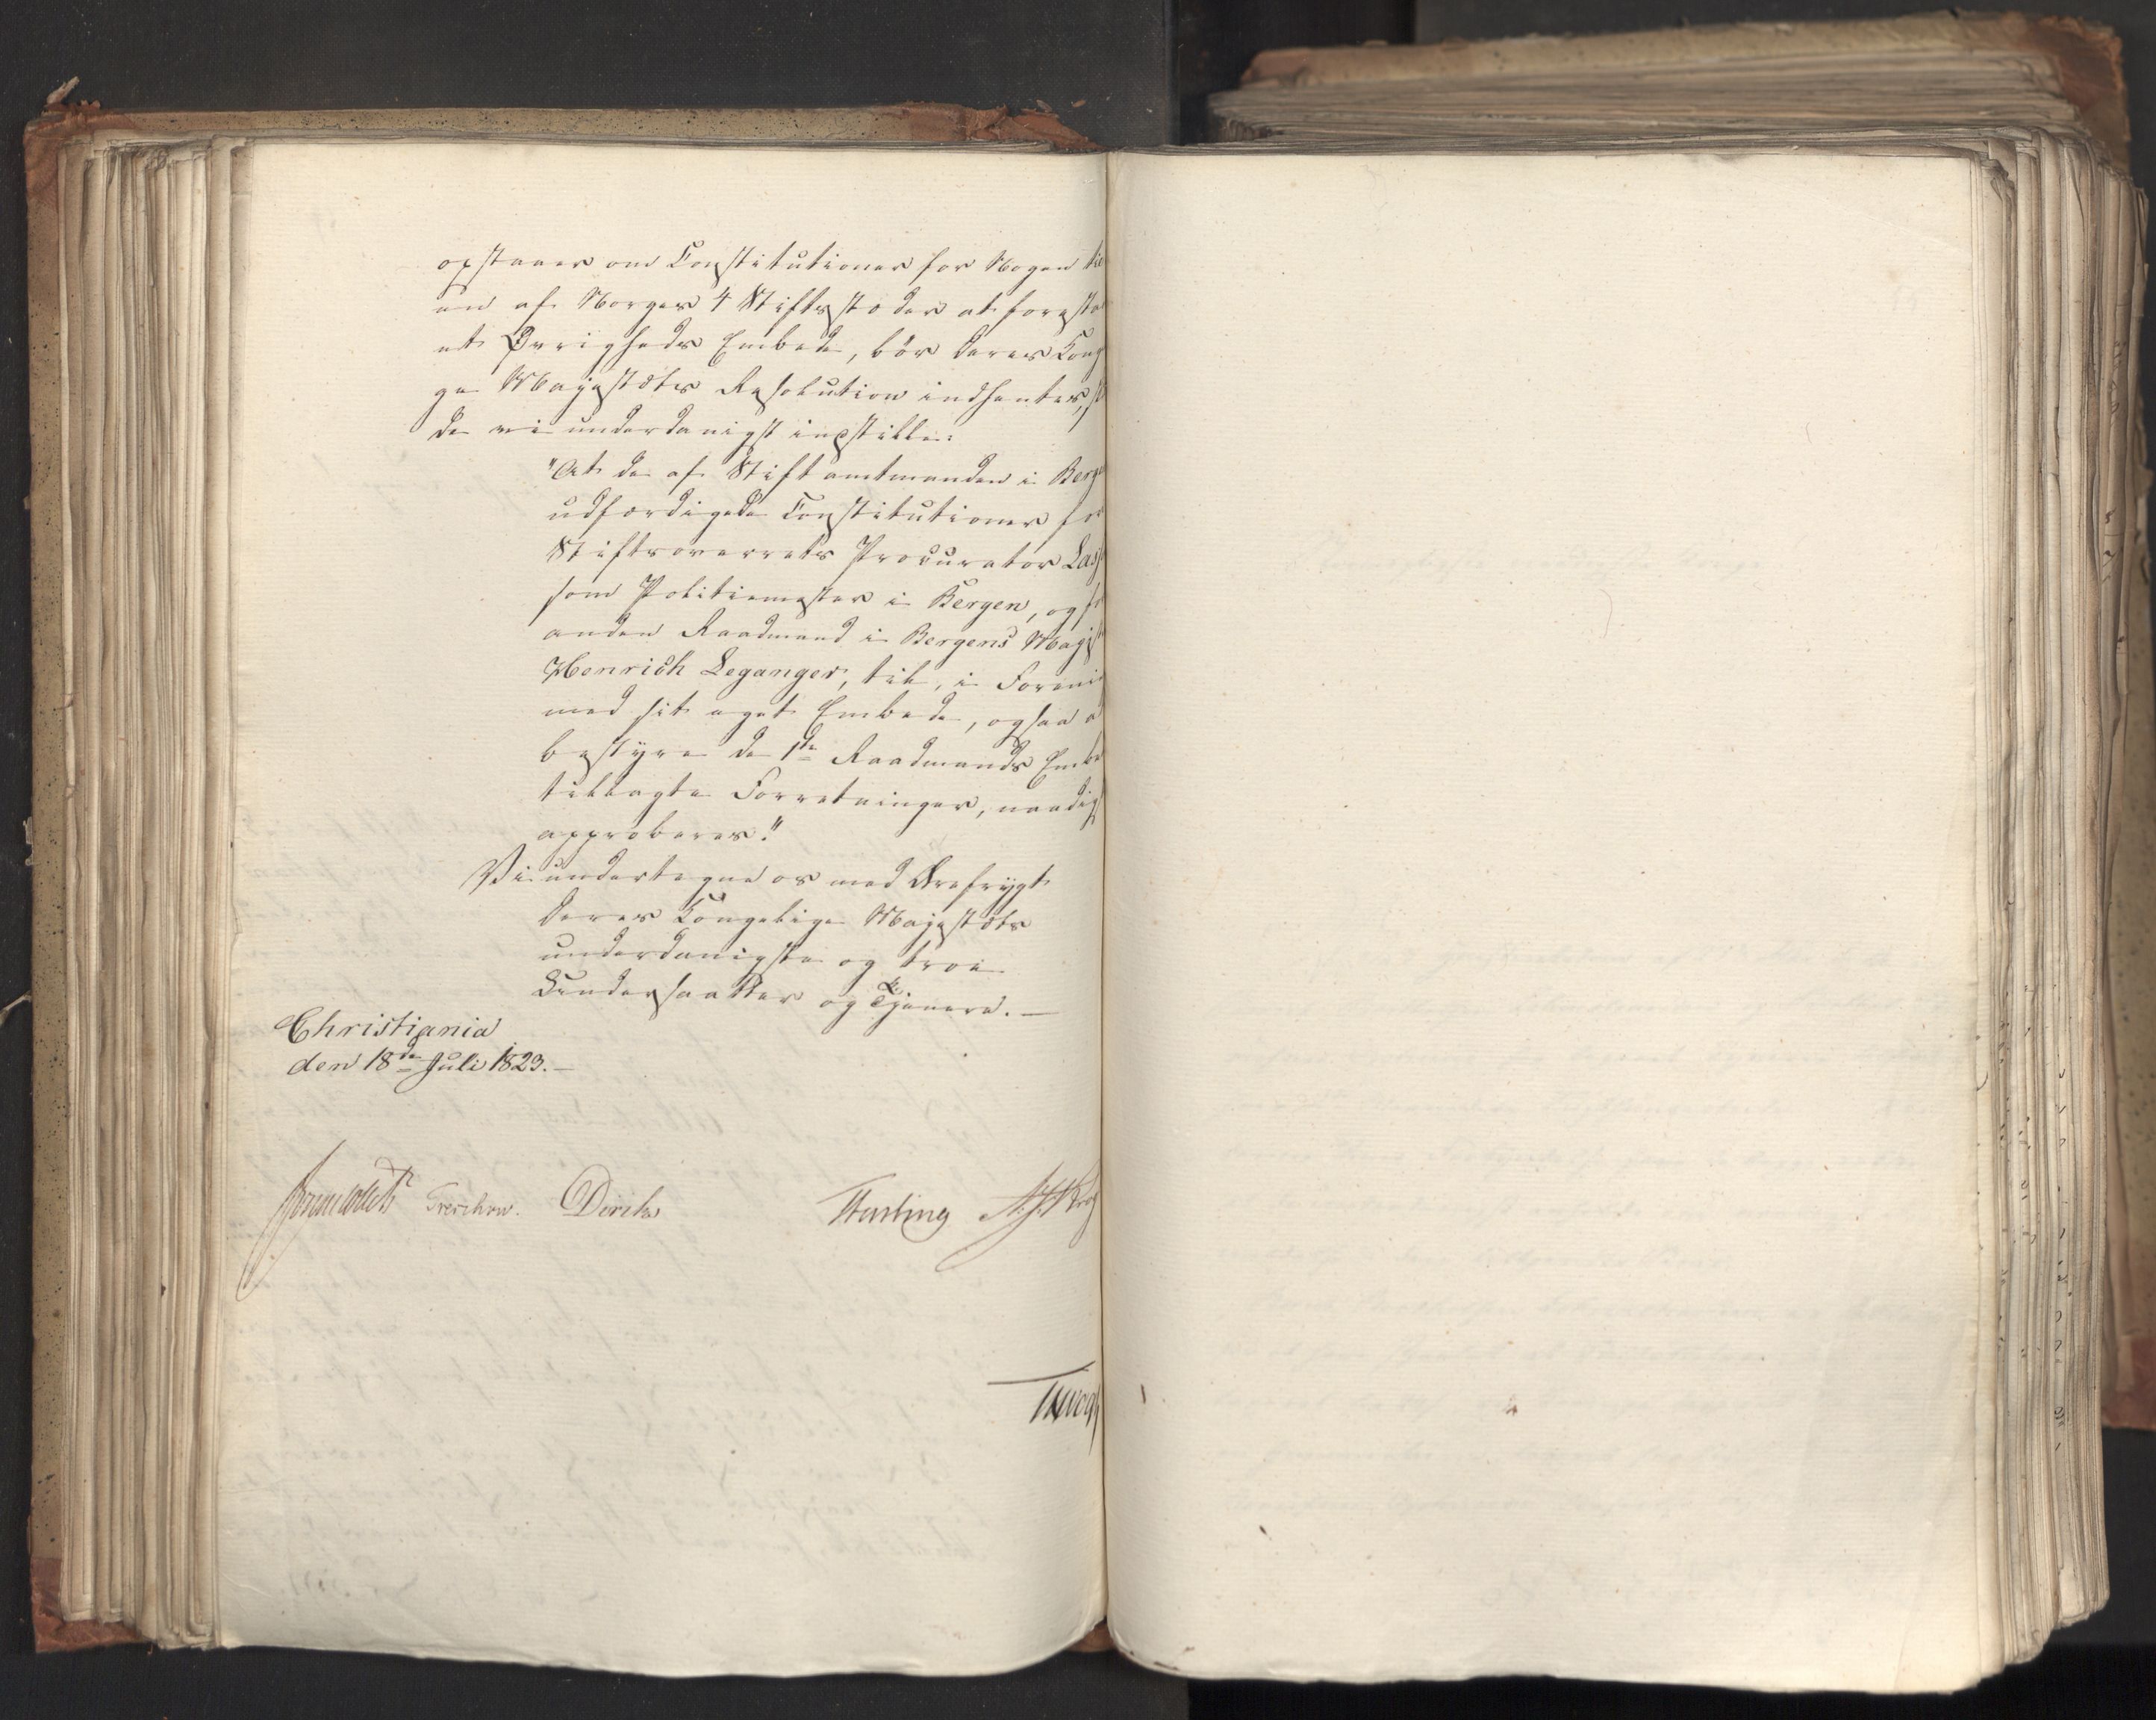 opstaaer om Constitutioner for Nogen til
een af Norges 4 Stiftsstæder at foresta
et Øvrigheds Embede, bör Deres Kong
ge Majestæts Resolution indhentes,
de vi underdanigst indstille:
"At de af Stiftamtmanden i Berge
udfærdigede Constitutioner for
Stiftsoverrets Procurator Las
som Politiemester i Bergen, og fo
anden Raadmand i Bergens Magist
Henrich Leganger, til, i Foreni
med sit eget Embede, ogsaa a
bestyre de 1ste Raadmands Embe
tillagte Forretninger, naadigst
approberes."
Vi undertegne os med Ærefrygt
Deres Kongelige Majestæts
underdanigste og troe
Undersaatter og Tjenere. —
Christiania
den 18de Juli 1823. —
Sommerhielm Treschow. Diriks Fasting A. J. Krog